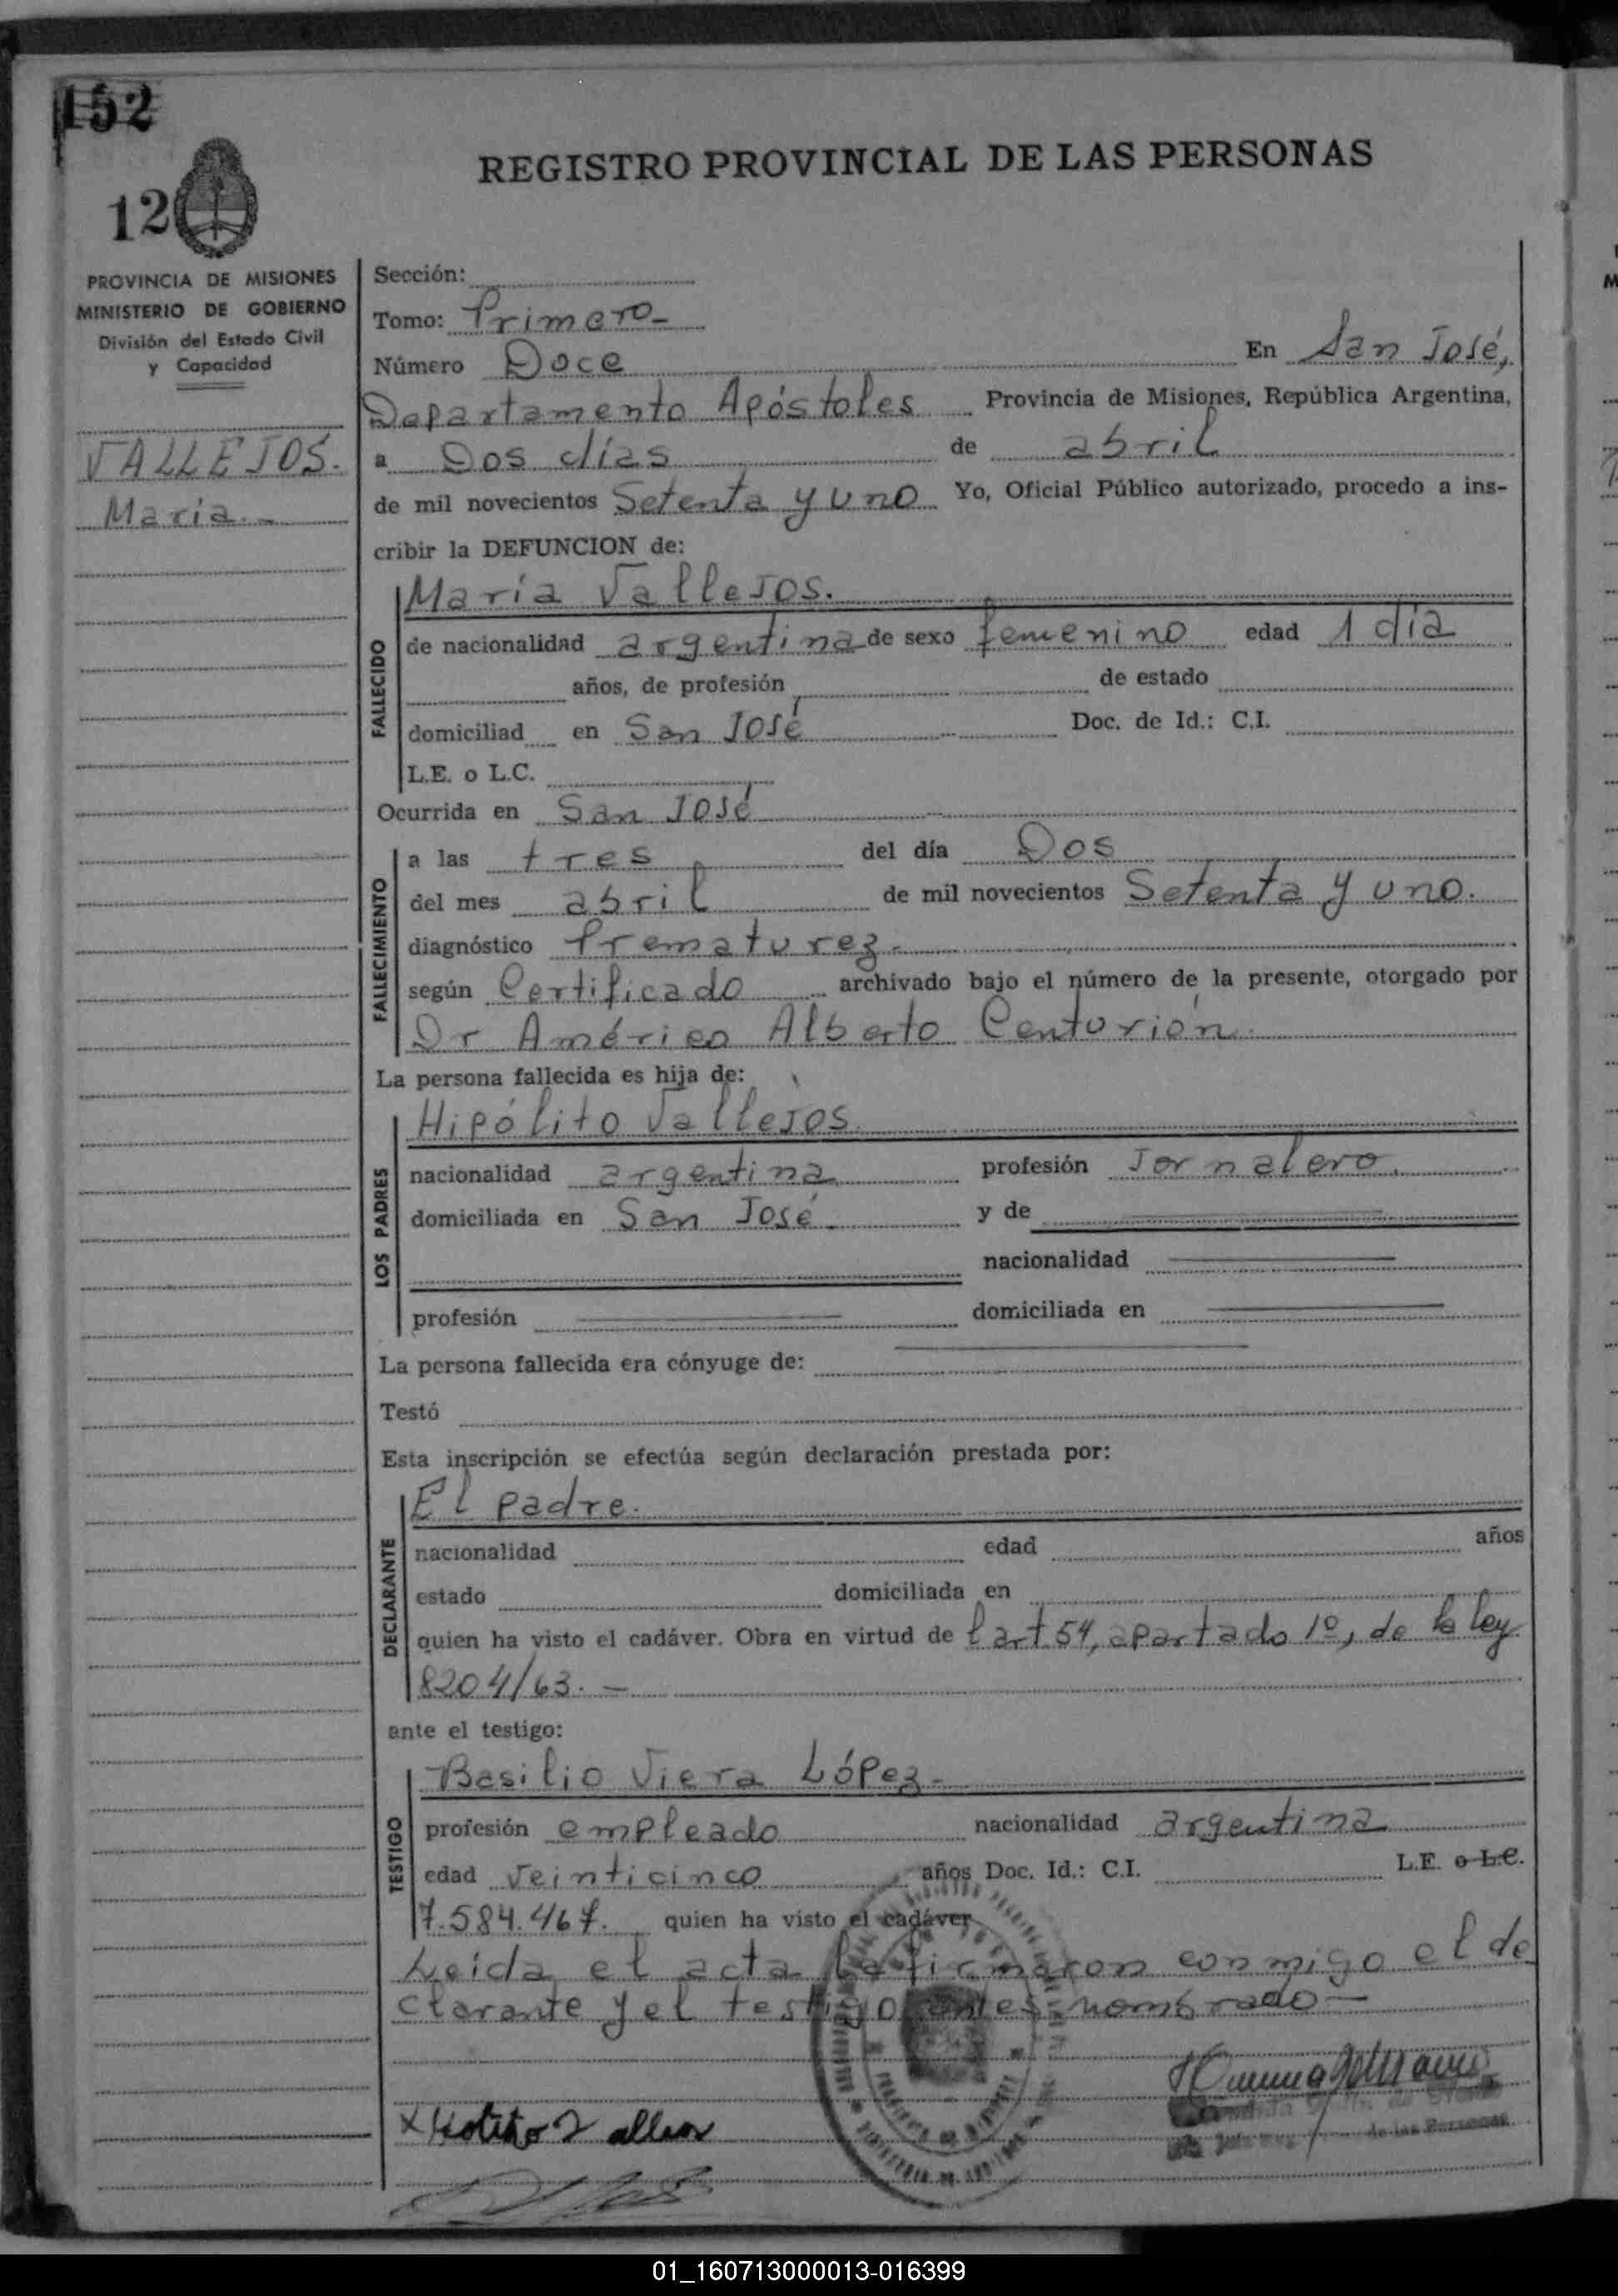 152
12
REGISTRO PROVINCIAL DE LAS PERSONAS
PROVINCIA DE MISIONES
MINISTERIO DE GOBIERNO
División del Estado Civil
y Capacidad
VALLEJOS.
María.-
Sección:
Tomo: Primero-
Número Doce En San José,
Departamento Apóstoles Provincia de Misiones, República Argentina,
a Dos días de abril
de mil novecientos Setenta y uno Yo, Oficial Público autorizado, procedo a ins-
cribir la DEFUNCION de:
FALLECIDO
María Vallejos.
de nacionalidad argentina de sexo femenino edad 1 día
años, de profesión de estado
domiciliad en San José Doc. de Id.: C.I.
L.E. o L.C.
Ocurrida en San José
FALLECIMIENTO
a las tres del día Dos
del mes abril de mil novecientos Setenta y uno.
diagnóstico Prematurez.
según Certificado archivado bajo el número de la presente, otorgado por
Dr Américo Alberto Centurión
La persona fallecida es hija de:
LOS PADRES
Hipólito Vallejos
nacionalidad argentina profesión Jornalero.
domiciliada en San José y de
nacionalidad
profesión domiciliada en
La persona fallecida era cónyuge de:
Testó
Esta inscripción se efectúa según declaración prestada por:
DECLARANTE
El padre.
nacionalidad edad años
estado domiciliada en
quien ha visto el cadáver. Obra en virtud de l art 54, apartado 1º, de la ley
8204/63. -
ante el testigo:
TESTIGO
Basilio Viera López-
profesión empleado nacionalidad argentina
edad veinticinco años Doc. Id.: C.I. L.E. o L.C.
7.584.467. quien ha visto el cadáver
Leída el acta la firmaron conmigo el de
clarante y el testigo antes nombrado-
de las Personas
01_160713000013-016399